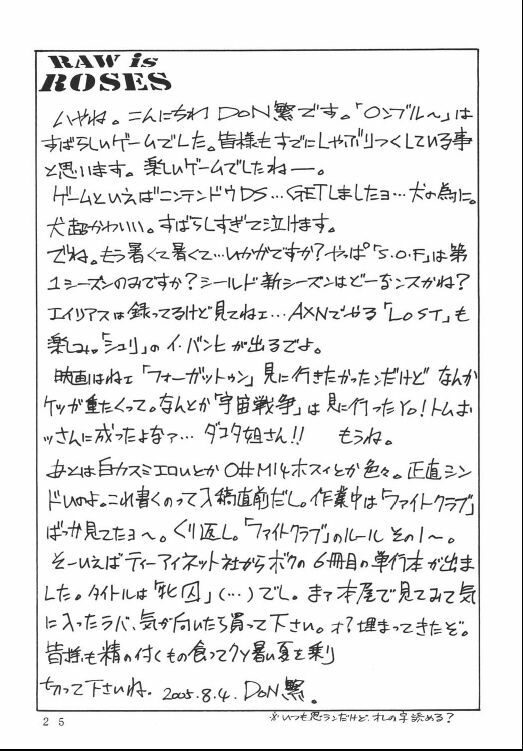 RAW is
ROSES
いやね。こんにちわ DoN繁です。「Oンブル〜」は
すばらしいゲームでした。皆様もすでにしゃぶりつくしている事
と思います。楽しいゲームでしたねー。
ゲームといえばニンテンドウDS…GETしましたヨ…犬の為に。
犬超かわいい。すばらしすぎて泣けます。
でね。もう暑くて暑くて…いかがですか?やっぱ「S.O.F」は第
1シーズンのみですか?シールド新シーズンはどーなンスかね?
エイリアスは録ってるけど見てねェ…AXNでやる「LOST」も
楽しみ。「シュリ」のイ・バンヒが出るでよ。
映画はねェ「フォーガットゥン」見に行きたかったンだけど なんか
ケツが重たくって。なんとか「宇宙戦争」は見に行ったYo!トムお
ッさんに成ったよなァ… ダコタ姐さん!! もうね。
あとは白カスミエロいとか O#M14ホスィとか色々。正直シン
ドいのよ。これ書くのって入稿直前だし。作業中は「ファイトクラブ」
ばっか見てたヨ〜。くり返し。「ファイトクラブ」のルール その1〜。
そーいえばティーアイネット社からボクの6冊目の単行本が出ま
した。タイトルは「牝囚」(…)でし。まァ本屋で見てみて気
に入ったラバ、気が向いたら買って下さい。オ?埋まってきたぞ。
皆様も精の付くもの食ってクソ暑い夏を乗り
切って下さいね。2005.8.4. DoN繁。
※いつも思うンだけど、オレの字読める?
25